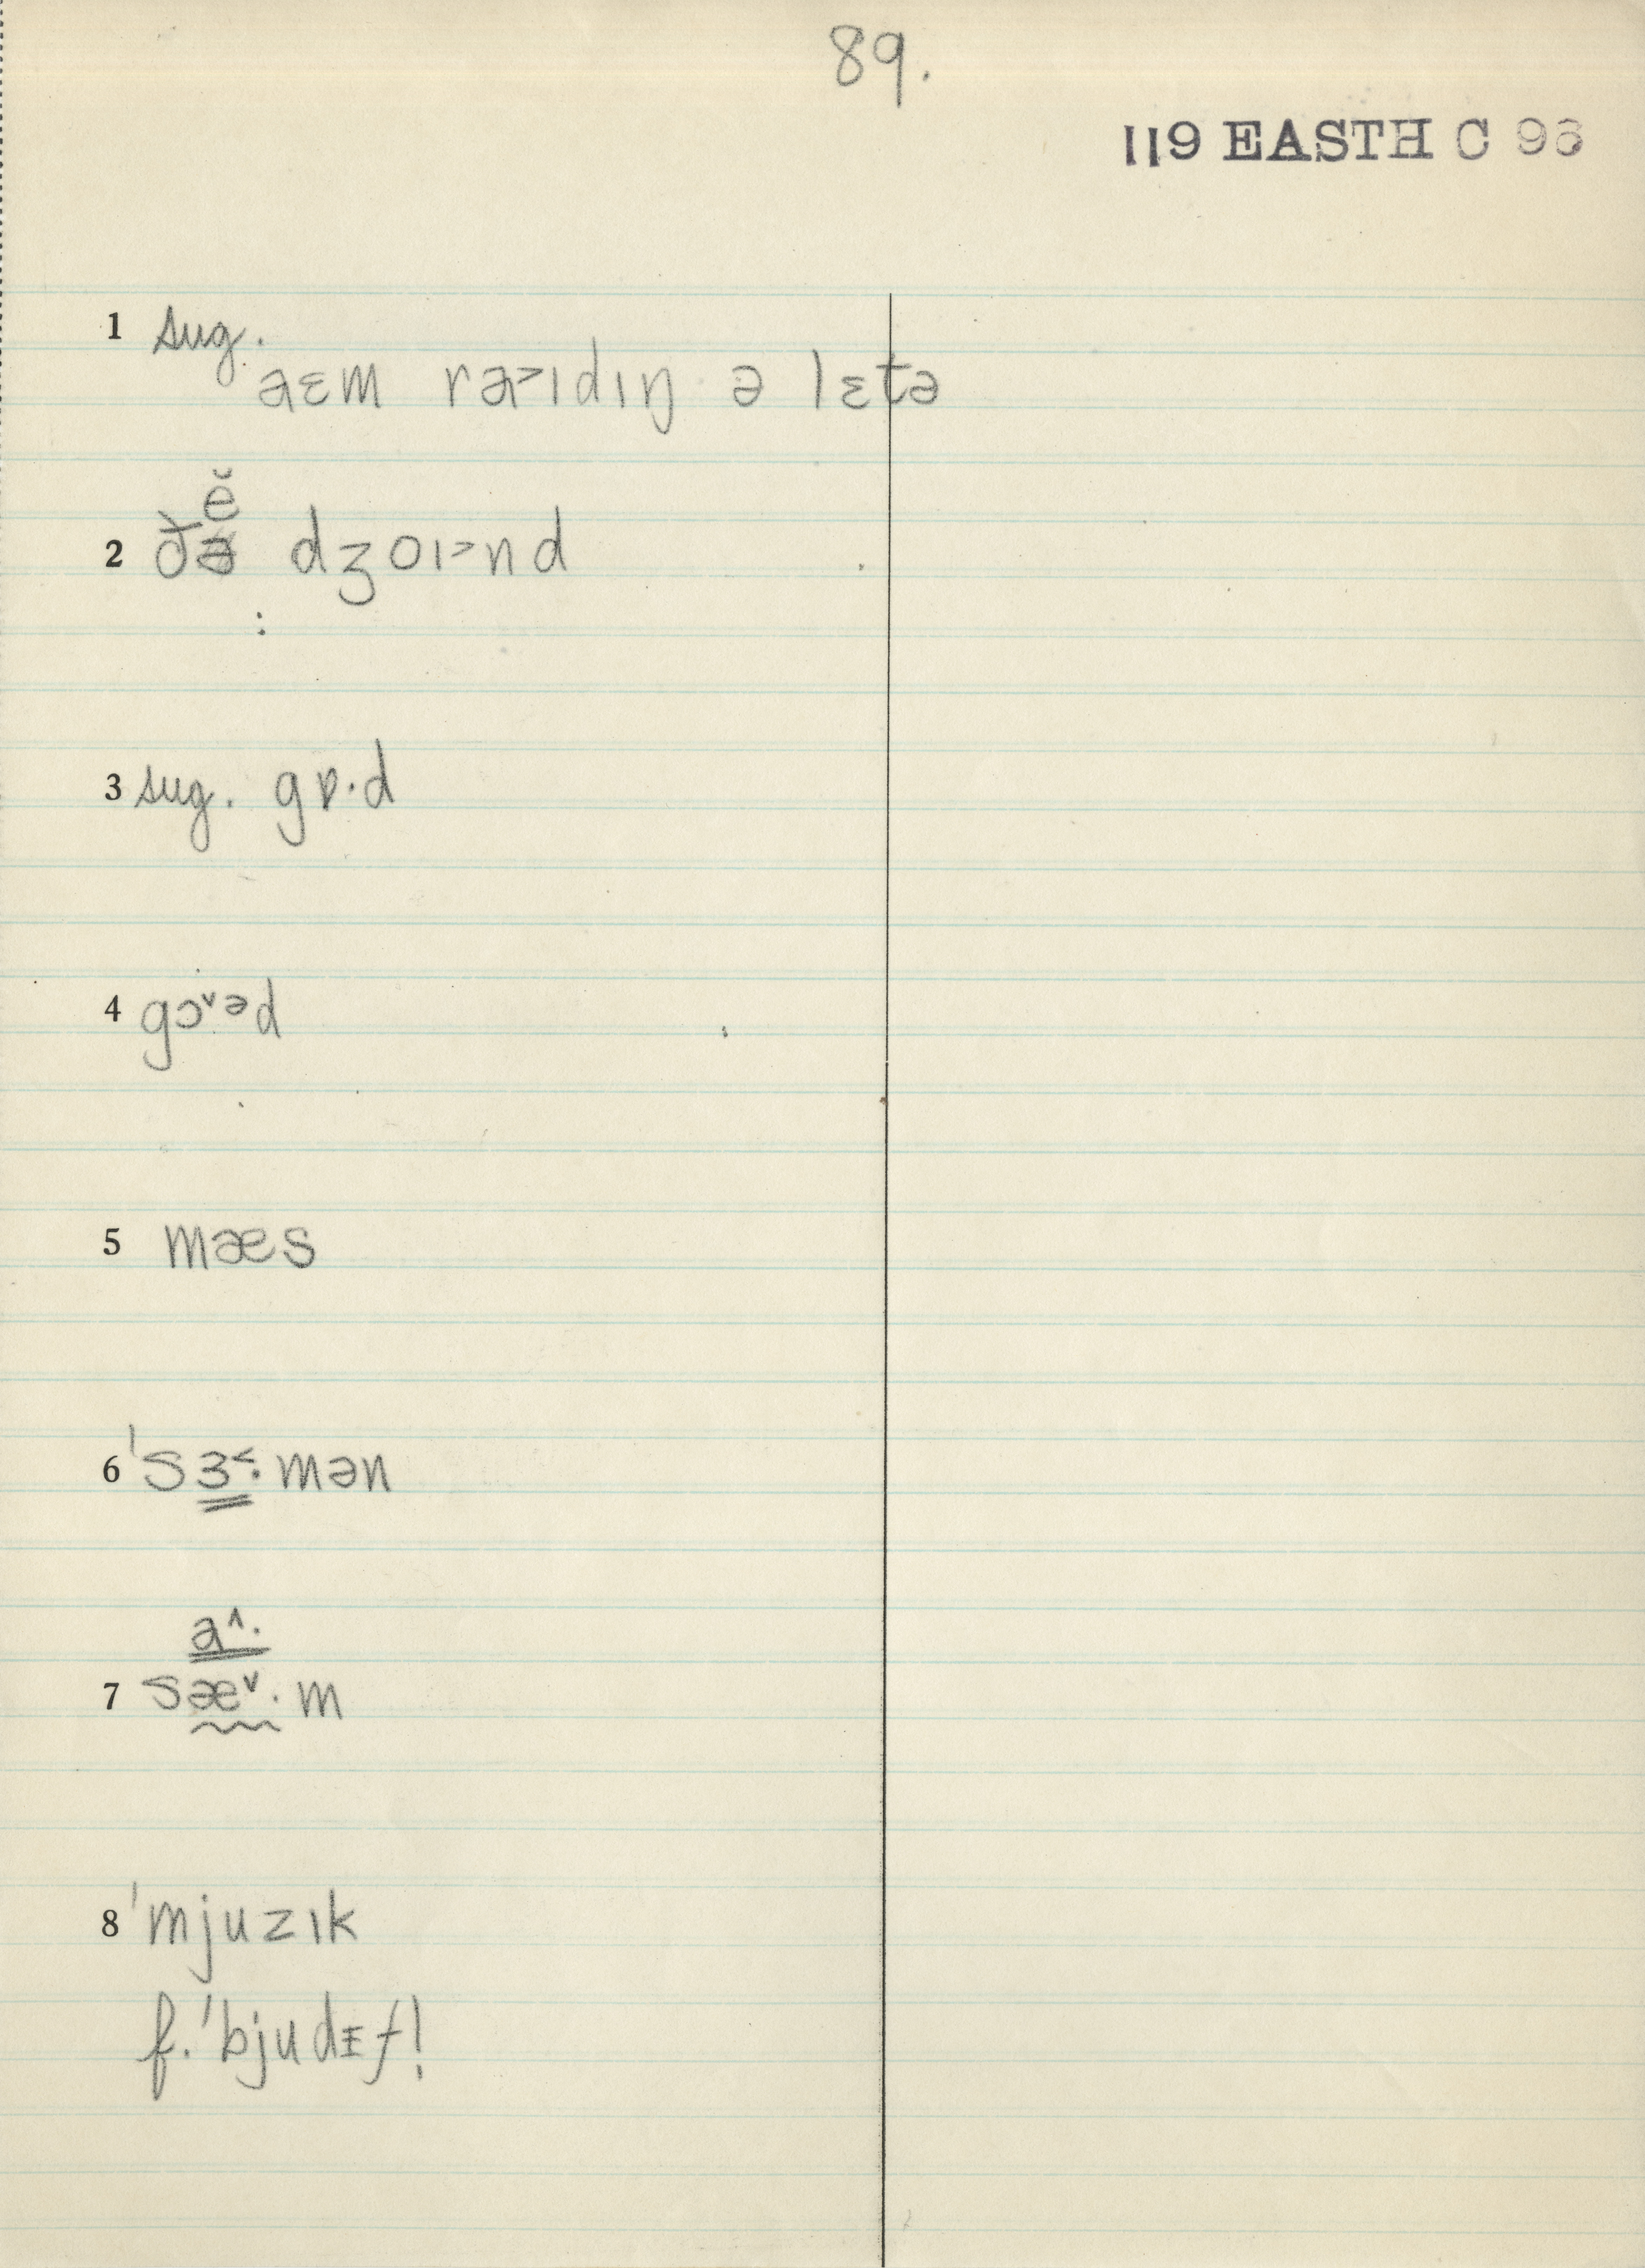 89.
119 EASTH C 96
1 sug.
aɛm ra˃ɪdɪŋ ə lɛtə
ĕ
2 ðə dʒoɪ˃nd
3 sug. gɒ·d
4 gɔ˅əd
5 mæs
6 'sɜ˂·mən
a˄·
7 sæ˅·m
8 'mjuzɪk
f. 'bjudɪf!